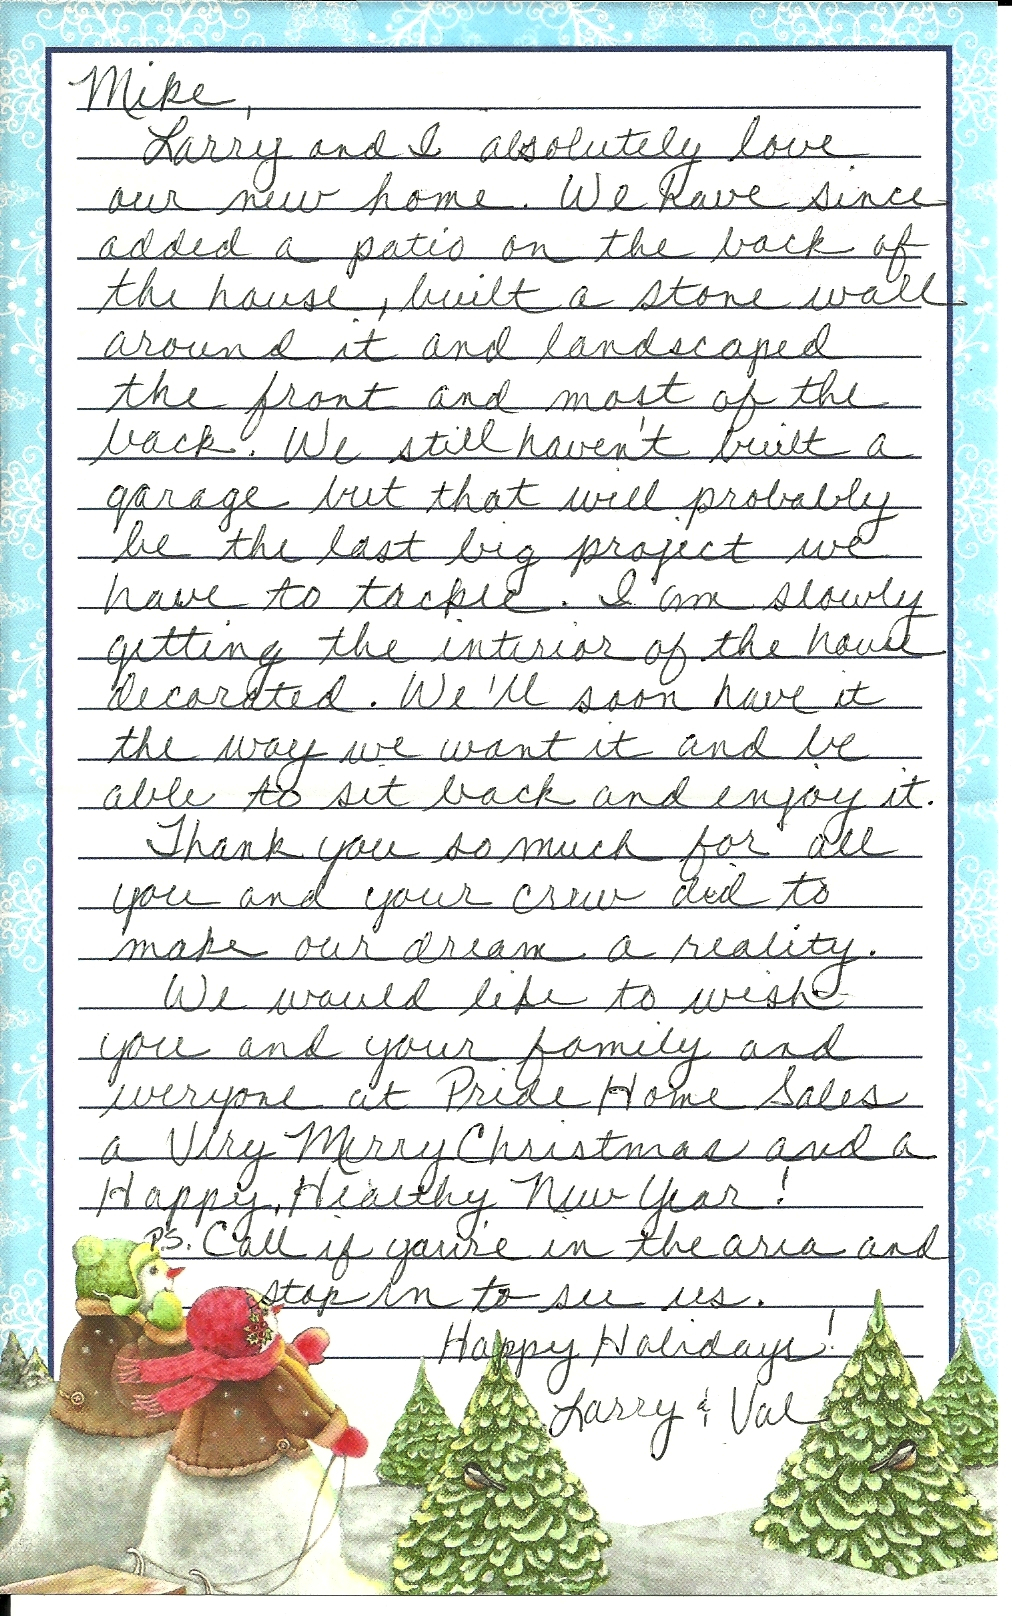 Mike,
Larry and I absolutely love
our new home. We have since
added a patio on the back of
the house, built a stone wall
around it and landscaped
the front and most of the
back. We still haven't built a
garage but that will probably
be the last big project we
have to tackle. I am slowly
getting the interior of the house
decorated. We'll soon have it
the way we want it and be
able to sit back and enjoy it.
Thank you so much for all
you and your crew did to
make our dream a reality.
We would like to wish
you and your family and
everyone at Pride Home Sales
a Very Merry Christmas and a
Happy, Healthy New Year!
P.S. Call if you're in the area and
stop in to see us.
Happy Holidays!
Larry & Val